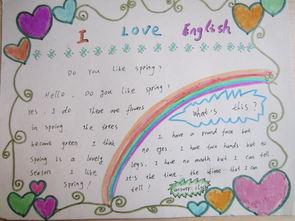 I Love English
Do you like spring?
Hello, Do you like spring?
Yes, I do There are flowers
in spring. The trees
become green I think
Spring is a lovely
Season I like
Spring!
What's this?
I have a round face but
no eyes. I have two hands but no
legs, I have no mouth but I can tell
the time that I can
tell!